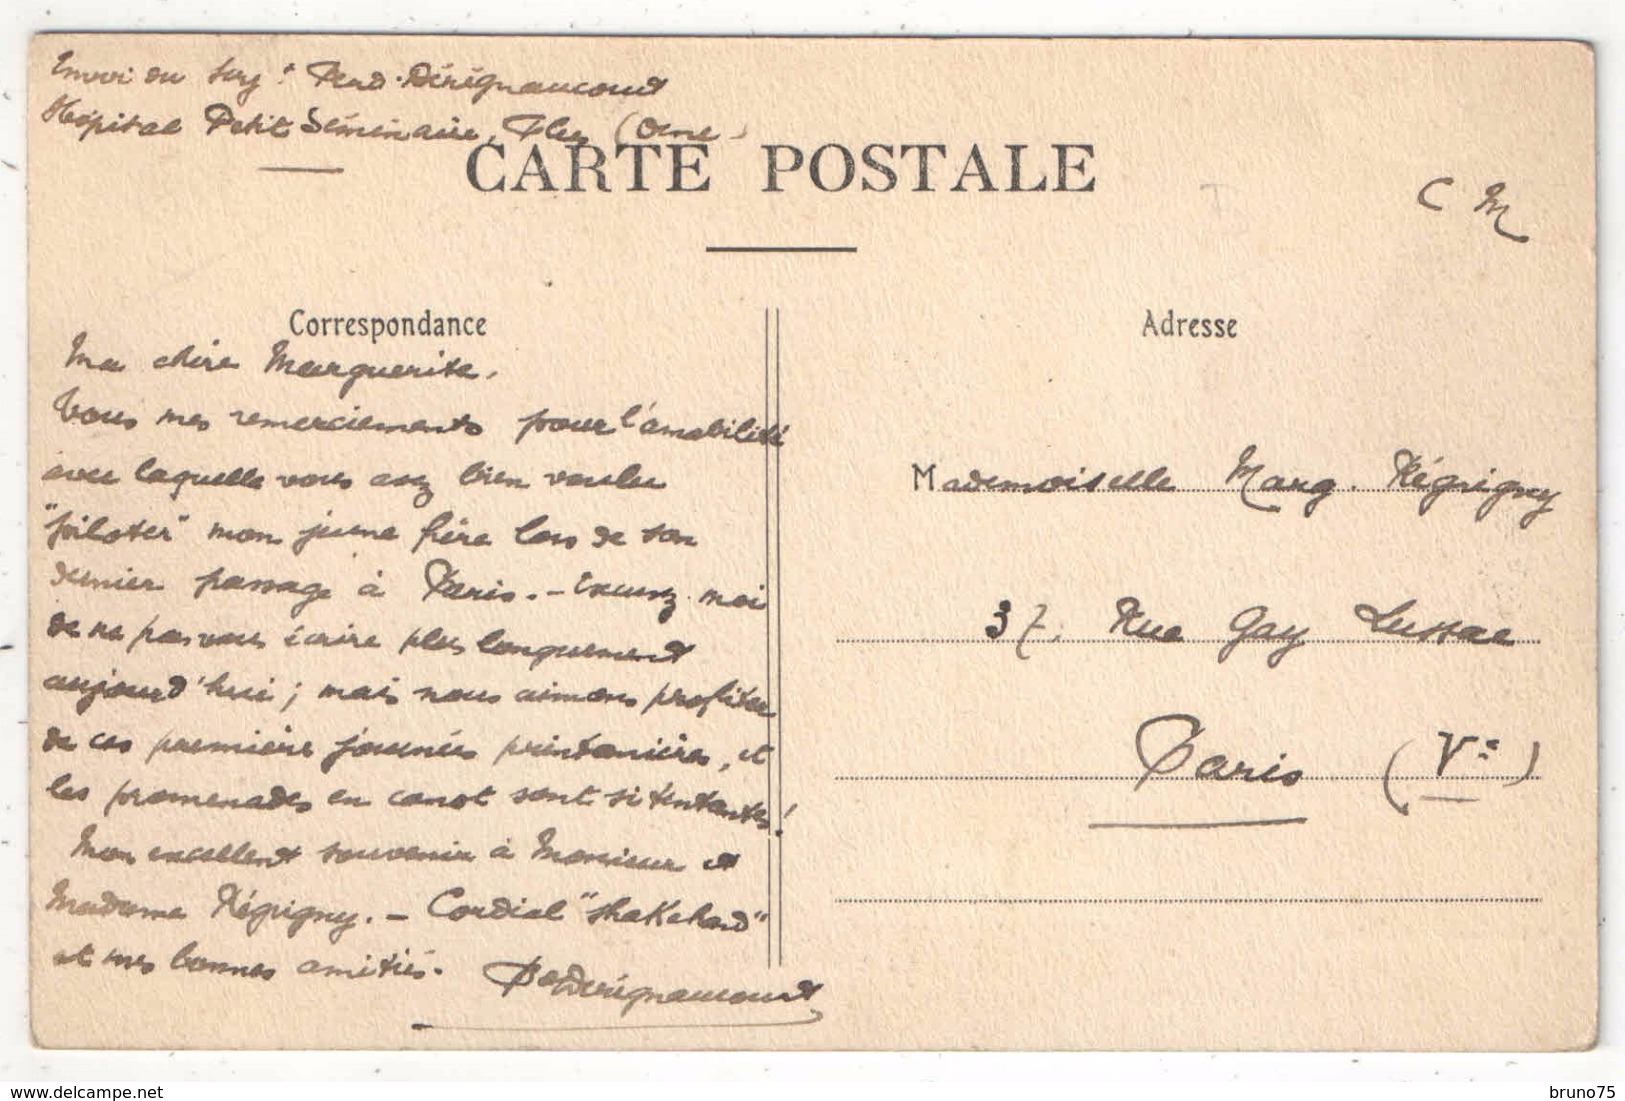 Envoi du Sergt Ferd. Dérégnaucourt
Hôpital Petit Séminaire, Flers (Orne)
CARTE POSTALE
C M
Correspondance
Ma chère Marguerite,
Tous mes remerciements pour l'amabilité
avec laquelle vous avez bien voulu
"piloter" mon jeune frère lors de son
dernier passage à Paris. - Excusez moi
de ne pas vous écrire plus longuement
aujourd'hui; mais nous aimons profiter
de ces premières journées printanières, et
les promenades en canot sont si tentantes!
Mon excellent souvenir à Monsieur et
Madame Régrigny. - Cordial "shakehand"
et mes bonnes amitiés.
Dérégnaucourt
Adresse
Mademoiselle Marg. Régrigny
37, Rue Gay Lussac
Paris (Ve)
delcampe.net
bruno75